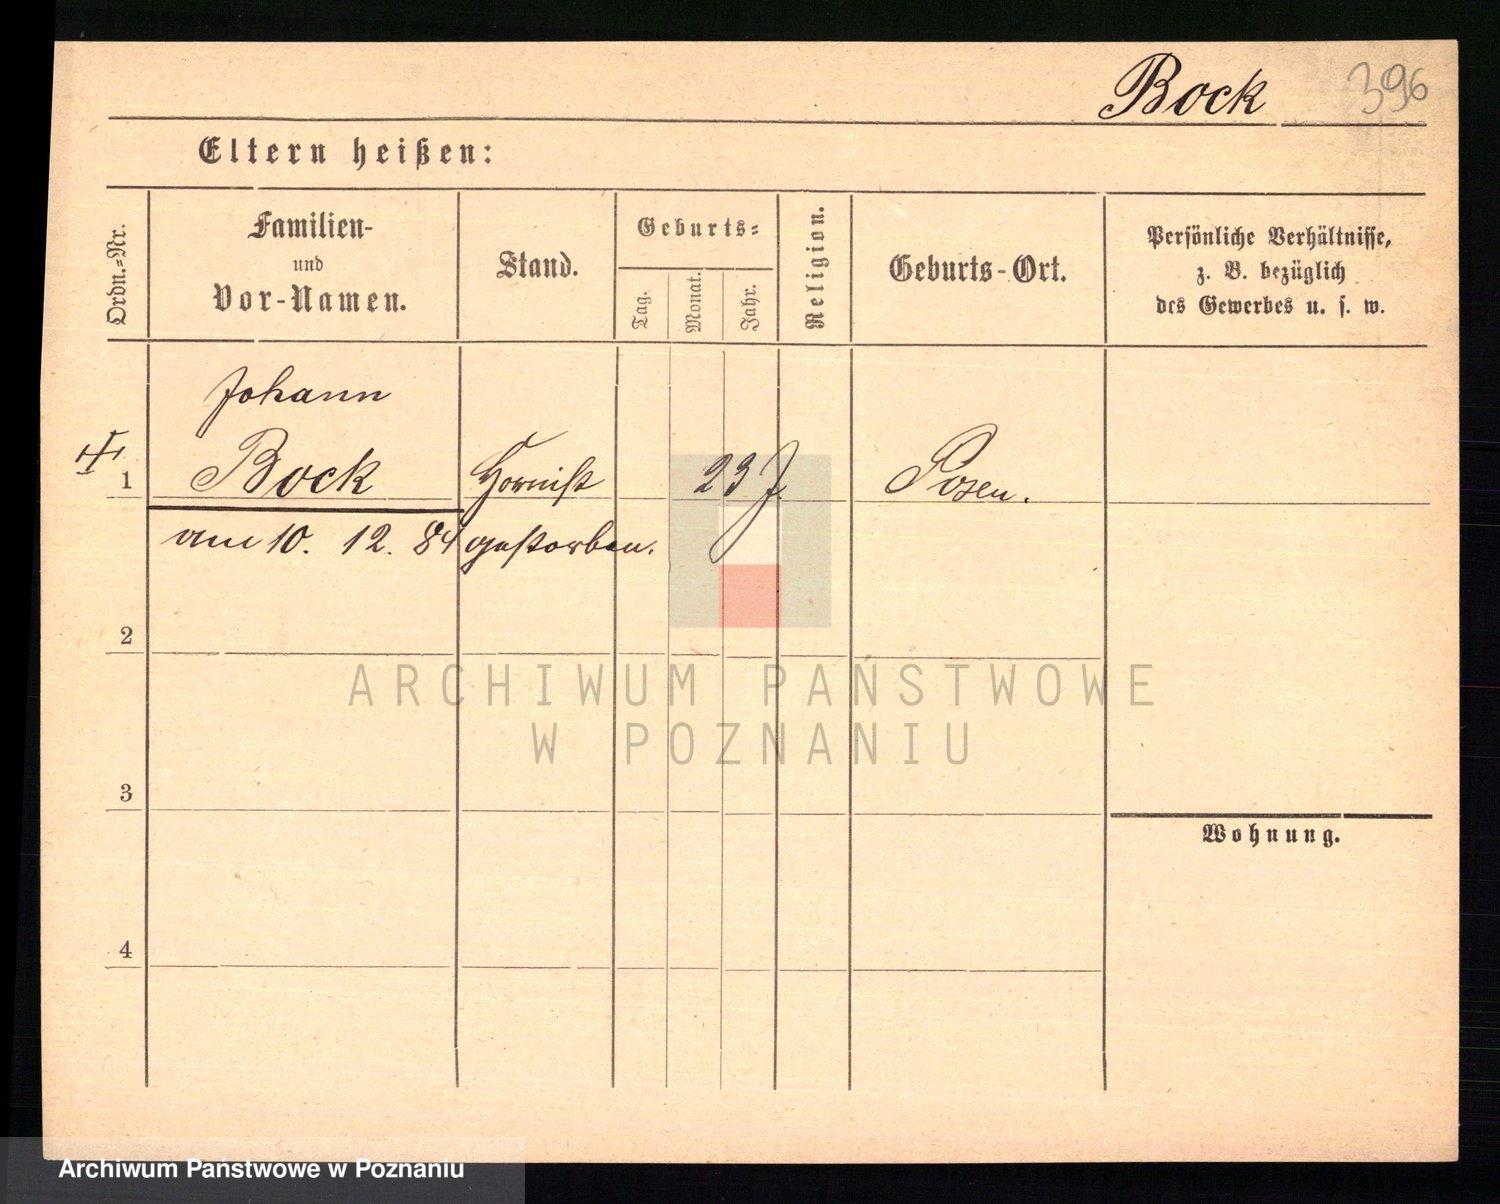 Bock 396
Eltern heißen:
Ordn.-Nr.
Familien-
und
Vor-Namen.
Stand.
Geburts-
Tag.
Monat.
Jahr.
Religion.
Geburts-Ort.
Persönliche Verhältnisse,
z. B. bezüglich
des Gewerbes u. s. w.
Johann
1 Bock Hornist 23 J. Posen.
am 10. 12. 84 gestorben.
2
ARCHIWUM PAŃSTWOWE
W POZNANIU
3
Wohnung.
4
Archiwum Państwowe w Poznaniu